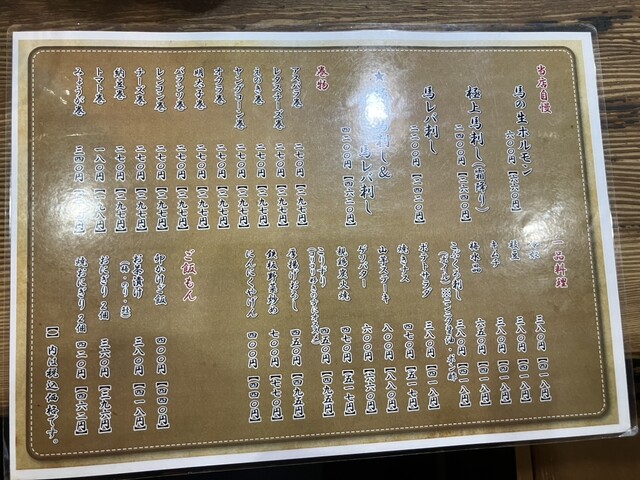 当店自慢
馬の生ホルモン 六〇〇円【六六〇円】
極上馬刺し(霜降り) 二四〇〇円【二六四〇円】
馬レバ刺し 二二〇〇円【二四二〇円】
★ 刺し&
馬レバ刺し
四二〇〇円【四六二〇円】
巻物
アスパラ巻 二七〇円【二九七円】
レタスチーズ巻 二七〇円【二九七円】
えのき巻 二七〇円【二九七円】
ヤングコーン巻 二七〇円【二九七円】
オクラ巻 二七〇円【二九七円】
明太子巻 二七〇円【二九七円】
二七〇円【二九七円】
レンコン巻 二七〇円【二九七円】
チーズ巻 二七〇円【二九七円】
納豆巻 二七〇円【二九七円】
トマト巻 一八〇円【一九八円】
みょうが巻 三四〇円
一品料理
三八〇円【四一八円】
枝豆 三八〇円【四一八円】
キムチ 三八〇円【四一八円】
梅水晶 六五〇円
刺し 三八〇円【四一八円】
ポテトサラダ 三八〇円【四一八円】
焼きナス 四七〇円【五一七円】
山芋ステーキ 八〇〇円【八八〇円】
バター 六〇〇円【六六〇円】
親鶏炭火焼 四七〇円【五一七円】
四五〇円【四九五円】
厚揚げおろし 四五〇円【四九五円】
鉄板野菜炒め 七〇〇円【七七〇円】
にんにく丸揚げ 四〇〇円【四四〇円】
ご飯もん
卵かけご飯 四〇〇円【四四〇円】
お茶漬け 三八〇円【四一八円】
(梅・のり・鮭)
おにぎり2個 三六〇円【三九六円】
焼おにぎり2個 四二〇円【四六二円】
【】内は税込価格です。